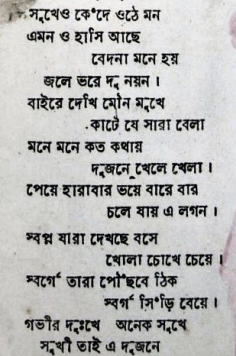 সুখেও কেঁদে ওঠে মন
এমন ও হাসি আছে
বেদনা মনে হয়
জলে ভরে দু নয়ন।
বাইরে দেখি মৌন মুখে
কাটে যে সারা বেলা
মনে মনে কত কথায়
দুজনে খেলে খেলা।
পেয়ে হারাবার ভয়ে বারে বার
চলে যায় এ লগন।
স্বপ্ন যারা দেখছে বসে
খোলা চোখে চেয়ে।
স্বর্গে তারা পৌঁছবে ঠিক
স্বর্গ সিঁড়ি বেয়ে।
গভীর দুঃখে অনেক সুখে
সুখী তাই এ দুজনে